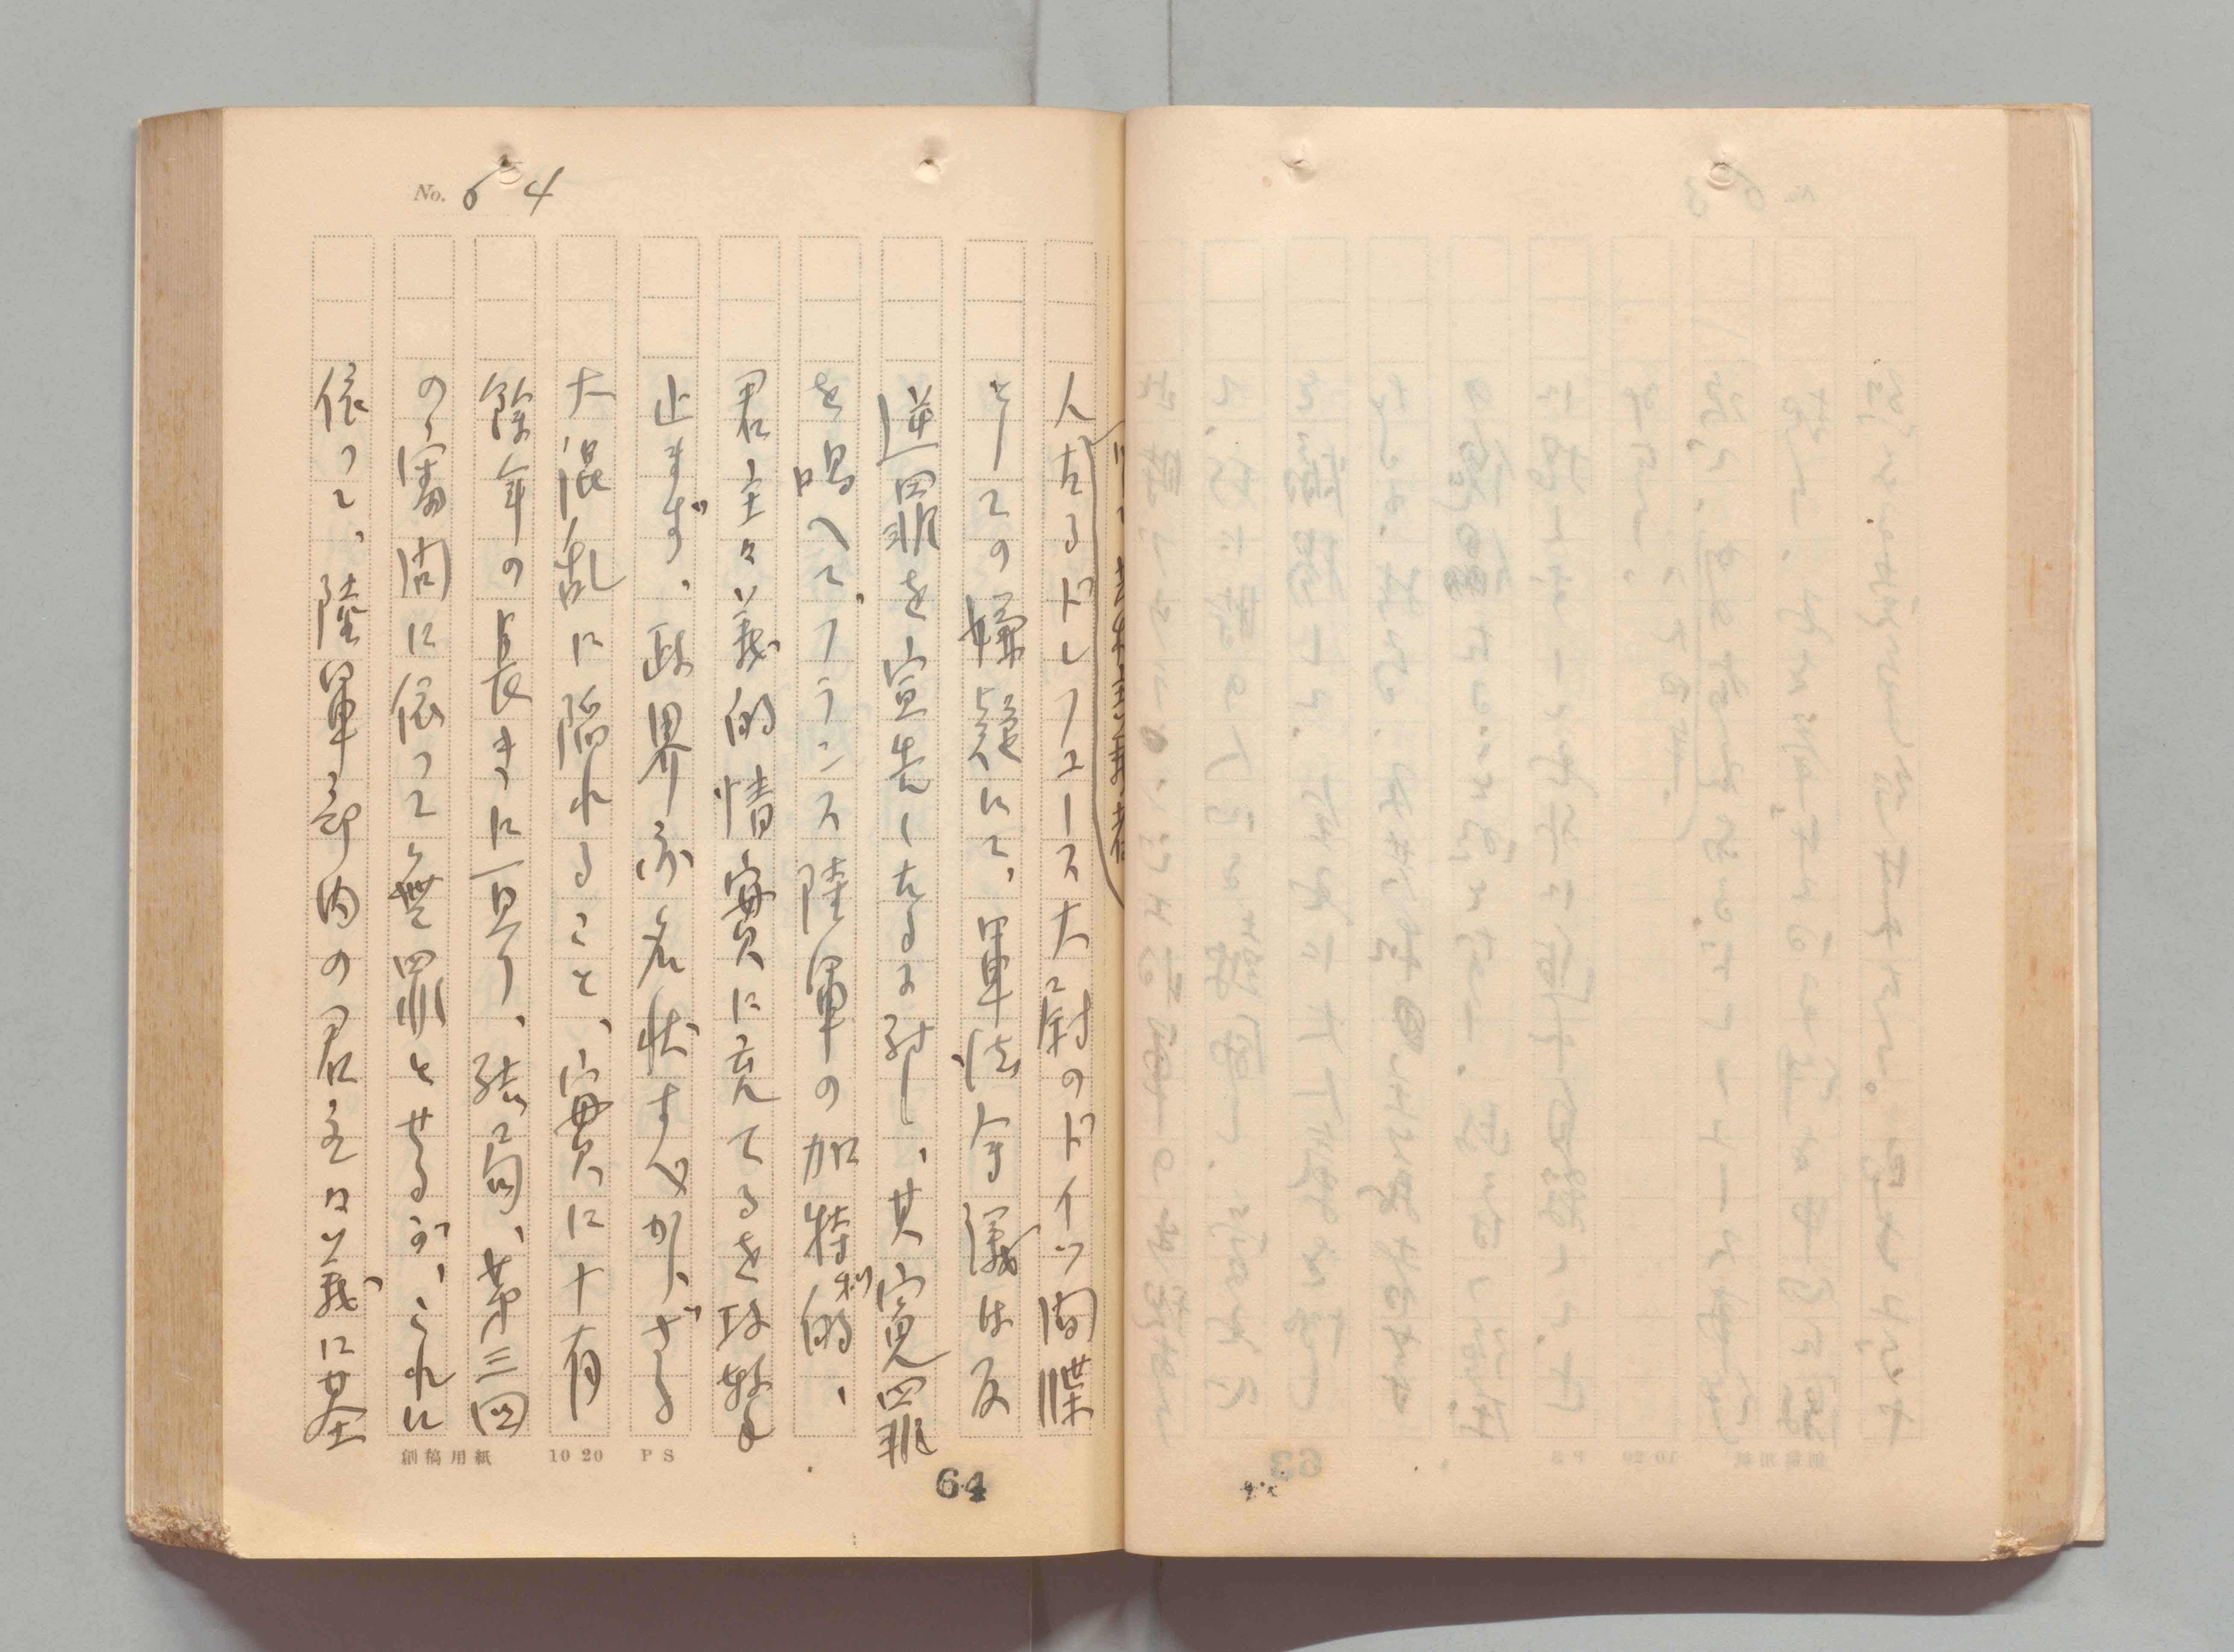 No. 64
人たるドレフュース大尉のドイツ間諜
としての嫌疑にて、軍法会議は反
逆罪を宣告したるに対し、其寃罪
を鳴へて、フランス陸軍の加特的、
君主々義的情實に充てるを攻撃して
止まず、政界為めに名状すべからざる
大混乱に陥れること、實に十有
餘年の長きに亘り、結局、第三回
の審問に依つて無罪とせるが、これに
依つて、陸軍部内の君主々義に基
創稿用紙 10 20 PS
64